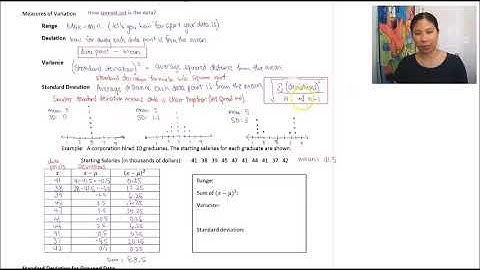 Measures of Variation How spread out is the data?
Range Max - Min (tells you how far apart your data is)
Deviation how far away each data point is from the mean
data point - mean
Variance (standard deviation)² = average squared distance from the mean
standard deviation formula w/o square root
Standard Deviation Average distance each data point is from the mean.
Smaller standard deviation means data is closer together (not spread out)
Example: A corporation hired 10 graduates. The starting salaries for each graduate are shown.
Starting Salaries (in thousands of dollars): 41 38 39 45 47 41 44 41 37 42 mean: 41.5
data points deviations
x x − μ (x − μ)²
41 41-41.5=-0.5 0.25
38 38-41.5=-3.5 12.25
39 -2.5 6.25
45 3.5 12.25
47 5.5 30.25
41 -0.5 0.25
44 2.5 6.25
41 -0.5 0.25
37 -4.5 20.25
42 0.5 0.25
sum = 88.5
Range:
Sum of (x − μ)²:
Variance:
Standard deviation:
Standard Deviation for Grouped Data